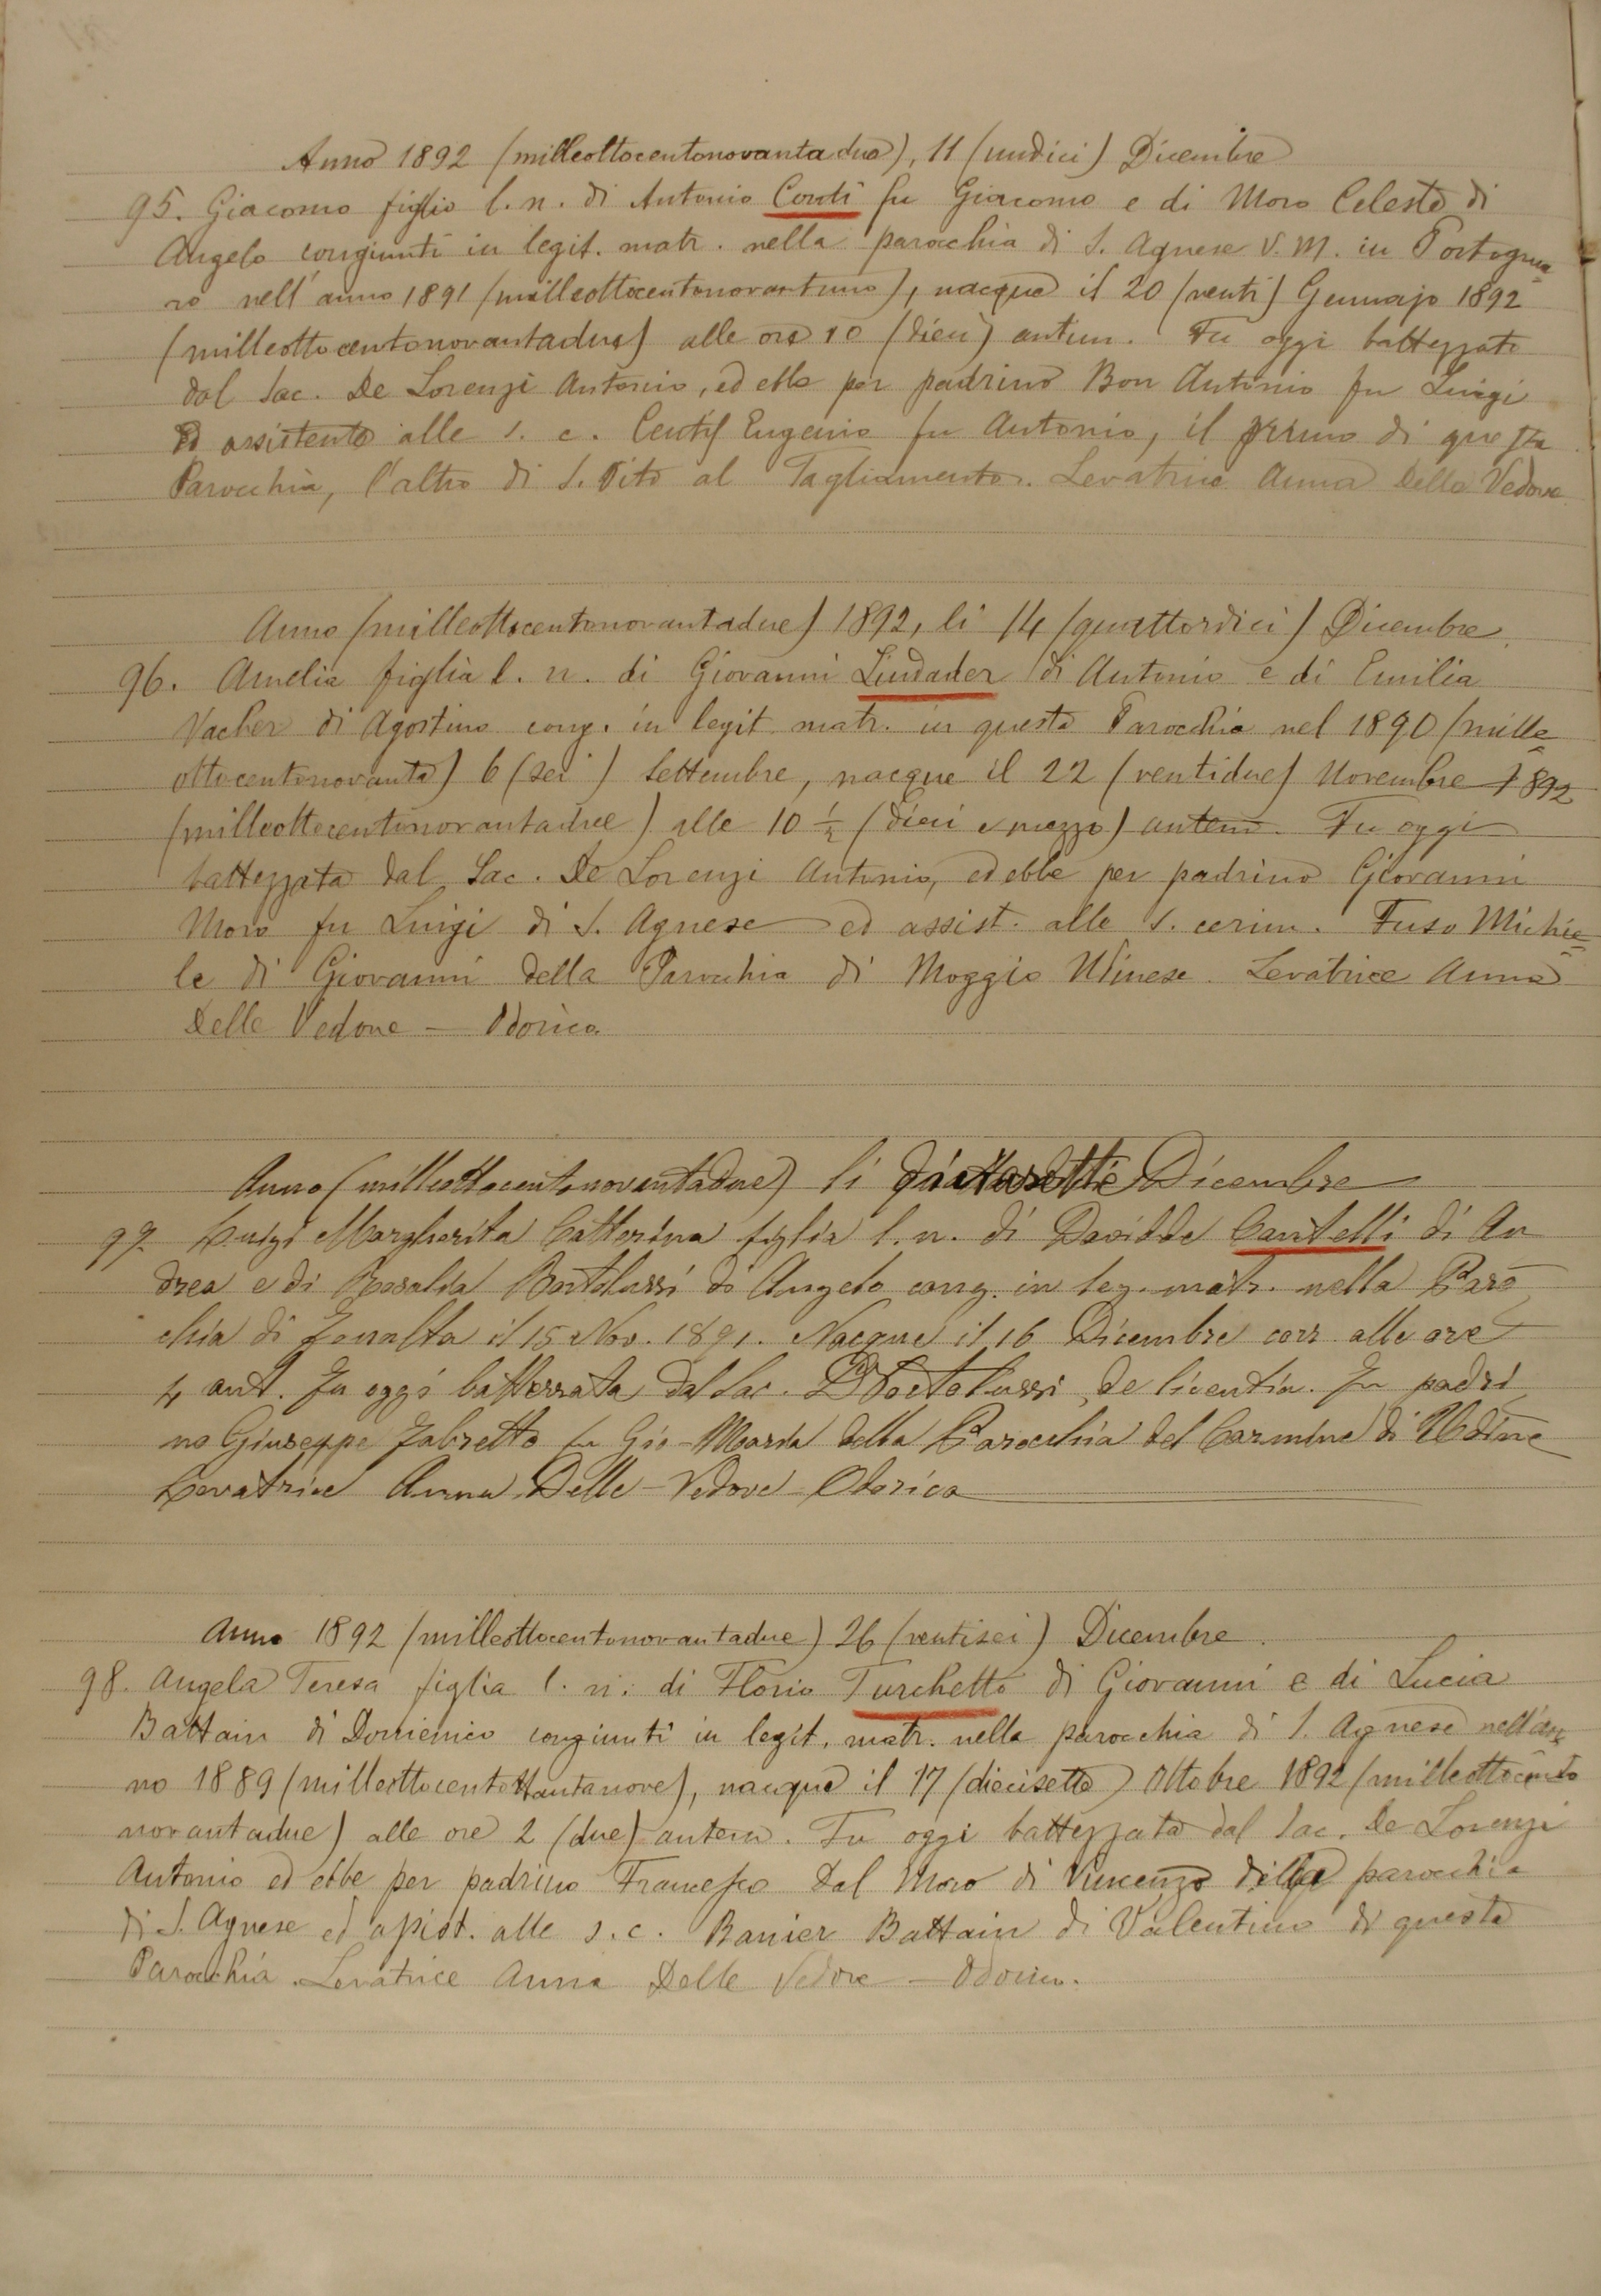 Anno 1892 (milleottocentonovantadue), 11 (undici) Dicembre
95. Giacomo figlio l. n. di Antonio Conti fu Giacomo e di Moro Celeste di
Angelo congiunti in legit. matr. nella parocchia di S. Agnese V. M. in Portogrua=
ro nell'anno 1891 (milleottocentonovantuno), nacque il 20 (venti) Gennajo 1892
(milleottocentonovantadue) alle ore 10 (dieci) antim. Fu oggi battezzato
dal Sac. De Lorenzi Antonio, ed ebbe per padrino Bon Antonio fu Luigi
ed assistente alle s. c. Eugenio fu Antonio, il primo di questa
Parocchia, l'altro di S. Vito al Tagliamento. Levatrice Anna Delle Vedove
Anno (milleottocentonovantadue) 1892, li 14 (quattordici) Dicembre
96. Amelia figlia l. n. di Giovanni Lindader di Antonio e di Emilia
Vacher di Agostino cong. in legit. matr. in questa Parocchia nel 1890 (mille=
ottocentonovanta) 6 (sei) Settembre, nacque il 22 (ventidue) Novembre 1892
(milleottocentonovantadue) alle 10 1/2 (dieci e mezzo) antem. Fu oggi
battezzata dal Sac. De Lorenzi Antonio, ed ebbe per padrino Giovanni
Moro fu Luigi di S. Agnese ed assist. alle s. cerim. Fuso Michie=
le di Giovanni della Parocchia di Moggio Udinese. Levatrice Anna
Delle Vedove — Odorico
Anno (milleottocentonovantadue) li Dicembre
97. Luigi Margherita Catterina figlia l. n. di Davidde Cantelli di An
drea e di Rosalia Bortolussi di Angelo cong. in leg. matr. nella Paro
chia di il 15 Nov. 1891. Nacque il 16 Dicembre corr. alle ore
4 ant. Fu oggi battezzata dal Sac. Bortolussi de licentia. Fu padri
no Giuseppe Fabretto fu Gio-Maria della Parocchia del Carmine di Udine
Levatrice Anna Delle-Vedove-Odorico
Anno 1892 (milleottocentonovantadue) 26 (ventisei) Dicembre.
98. Angela Teresa figlia l. n. di Florio Turchetto di Giovanni e di Lucia
Battain di Domenico congiunti in legit. matr. nella parocchia di S. Agnese nell'an=
no 1889 (milleottocentottantanove), nacque il 17 (diecisette) Ottobre 1892 (milleottocento
novantadue) alle ore 2 (due) antem. Fu oggi battezzata dal Sac. De Lorenzi
Antonio ed ebbe per padrino Francesco Dal Moro di Vincenzo della parocchia
di S. Agnese ed assist. alle s. c. Ranier Battain di Valentino di questa
Parocchia. Levatrice Anna Delle Vedove — Odorico.